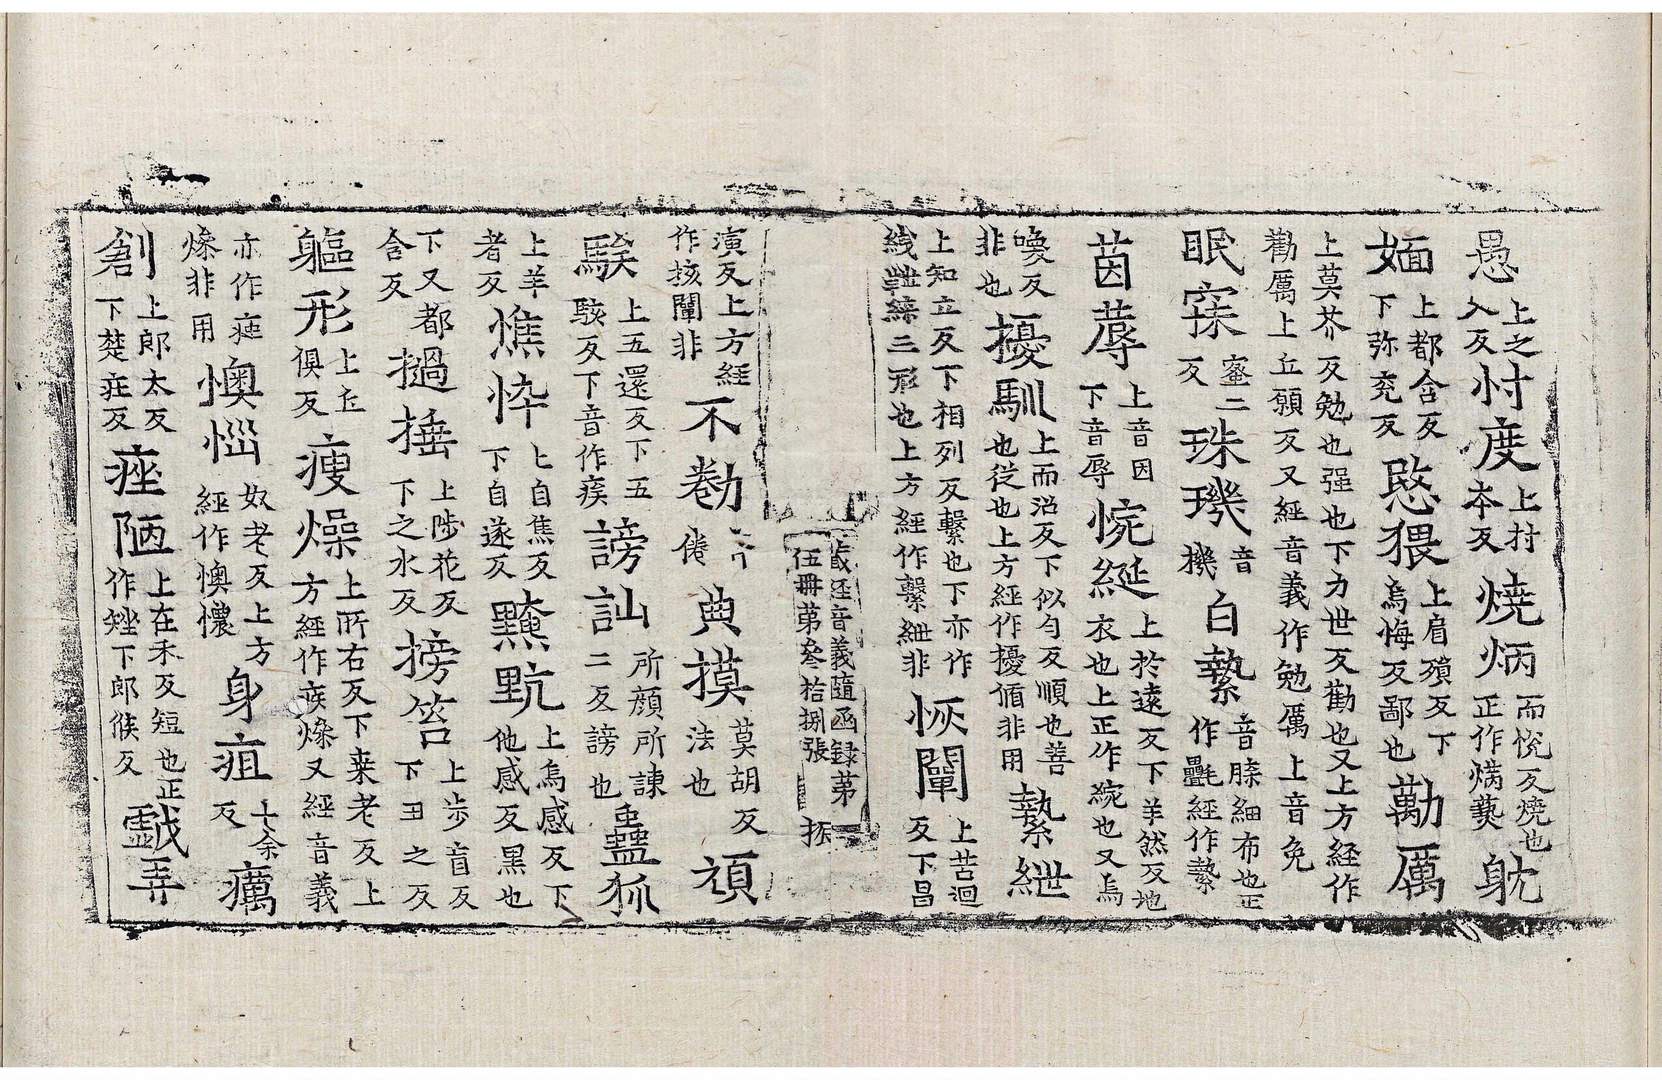 愚上之入反忖度上村本反燒炳而悅反燒也正作焫爇躭
媔上都含反下弥兖反愍猥上眉殞反下烏悔反鄙也勱厲
上莫芥反勉也强也下力世反勸也又上方經作勸厲上丘願反又經音義作勉厲上音免
眠寐蜜二反珠璣音機白縶音牒細布也正作㲲經作縶
茵蓐上音因下音辱惋綖上於遠反下羊然反地衣也上正作婉也又烏
喚反非也擾馴上而沼反下似勻反順也善也從也上方經作擾循非用縶紲
上知立反下相列反繫也下亦作緤三形也上方經作繫紲非恢闡上苦迴反下昌
藏経音義隨函録苐
伍冊苐叄拾捌張 振
演反上方經作核闡非不勌倦典摸莫胡反法也頑
騃上五還反下五駭反下音作疾謗訕所顔所諫二反謗也蠱狐
上羊者反憔悴上自焦反下自遂反黤黕上烏感反下他感反黑也
下又都含反撾捶上陟花反下之水反搒笞上步盲反下丑之反
軀形上丘俱反痩燥上所右反下桒老反上方經作疾燥又經音義
亦作痖燥非用懊惱奴老反上方經作懊憹身疽七余反癘
創上郎太反下楚疰反痤陋上在禾反短也正作矬下郎候反戲弄